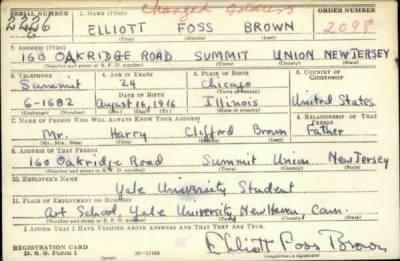 SERIAL NUMBER 1. NAME (Print) Changed address ORDER NUMBER
2226 ELLIOTT FOSS BROWN 2098
(First) (Middle) (Last)
2. ADDRESS (Print)
160 OAKRIDGE ROAD SUMMIT UNION NEW JERSEY
(Number and street or R. F. D. number) (Town) (County) (State)
3. TELEPHONE 4. AGE IN YEARS 5. PLACE OF BIRTH 6. COUNTRY OF CITIZENSHIP
Summit 24 Chicago
DATE OF BIRTH
6-1682 August 16, 1916 Illinois United States
(Exchange) (Number) (Mo.) (Day) (Yr.) (State or country)
7. NAME OF PERSON WHO WILL ALWAYS KNOW YOUR ADDRESS 8. RELATIONSHIP OF THAT PERSON
Mr. Harry Clifford Brown Father
(Mr., Mrs., Miss) (First) (Middle) (Last)
9. ADDRESS OF THAT PERSON
160 Oakridge Road Summit Union New Jersey
(Number and street or R. F. D. number) (Town) (County) (State)
10. EMPLOYER'S NAME
Yale University Student
11. PLACE OF EMPLOYMENT OR BUSINESS
Art School Yale University, New Haven, Conn.
(Number and street or R. F. D. number) (Town) (County) (State)
I AFFIRM THAT I HAVE VERIFIED ABOVE ANSWERS AND THAT THEY ARE TRUE.
REGISTRATION CARD Elliott Foss Brown
D. S. S. Form 1 (Registrant's signature)